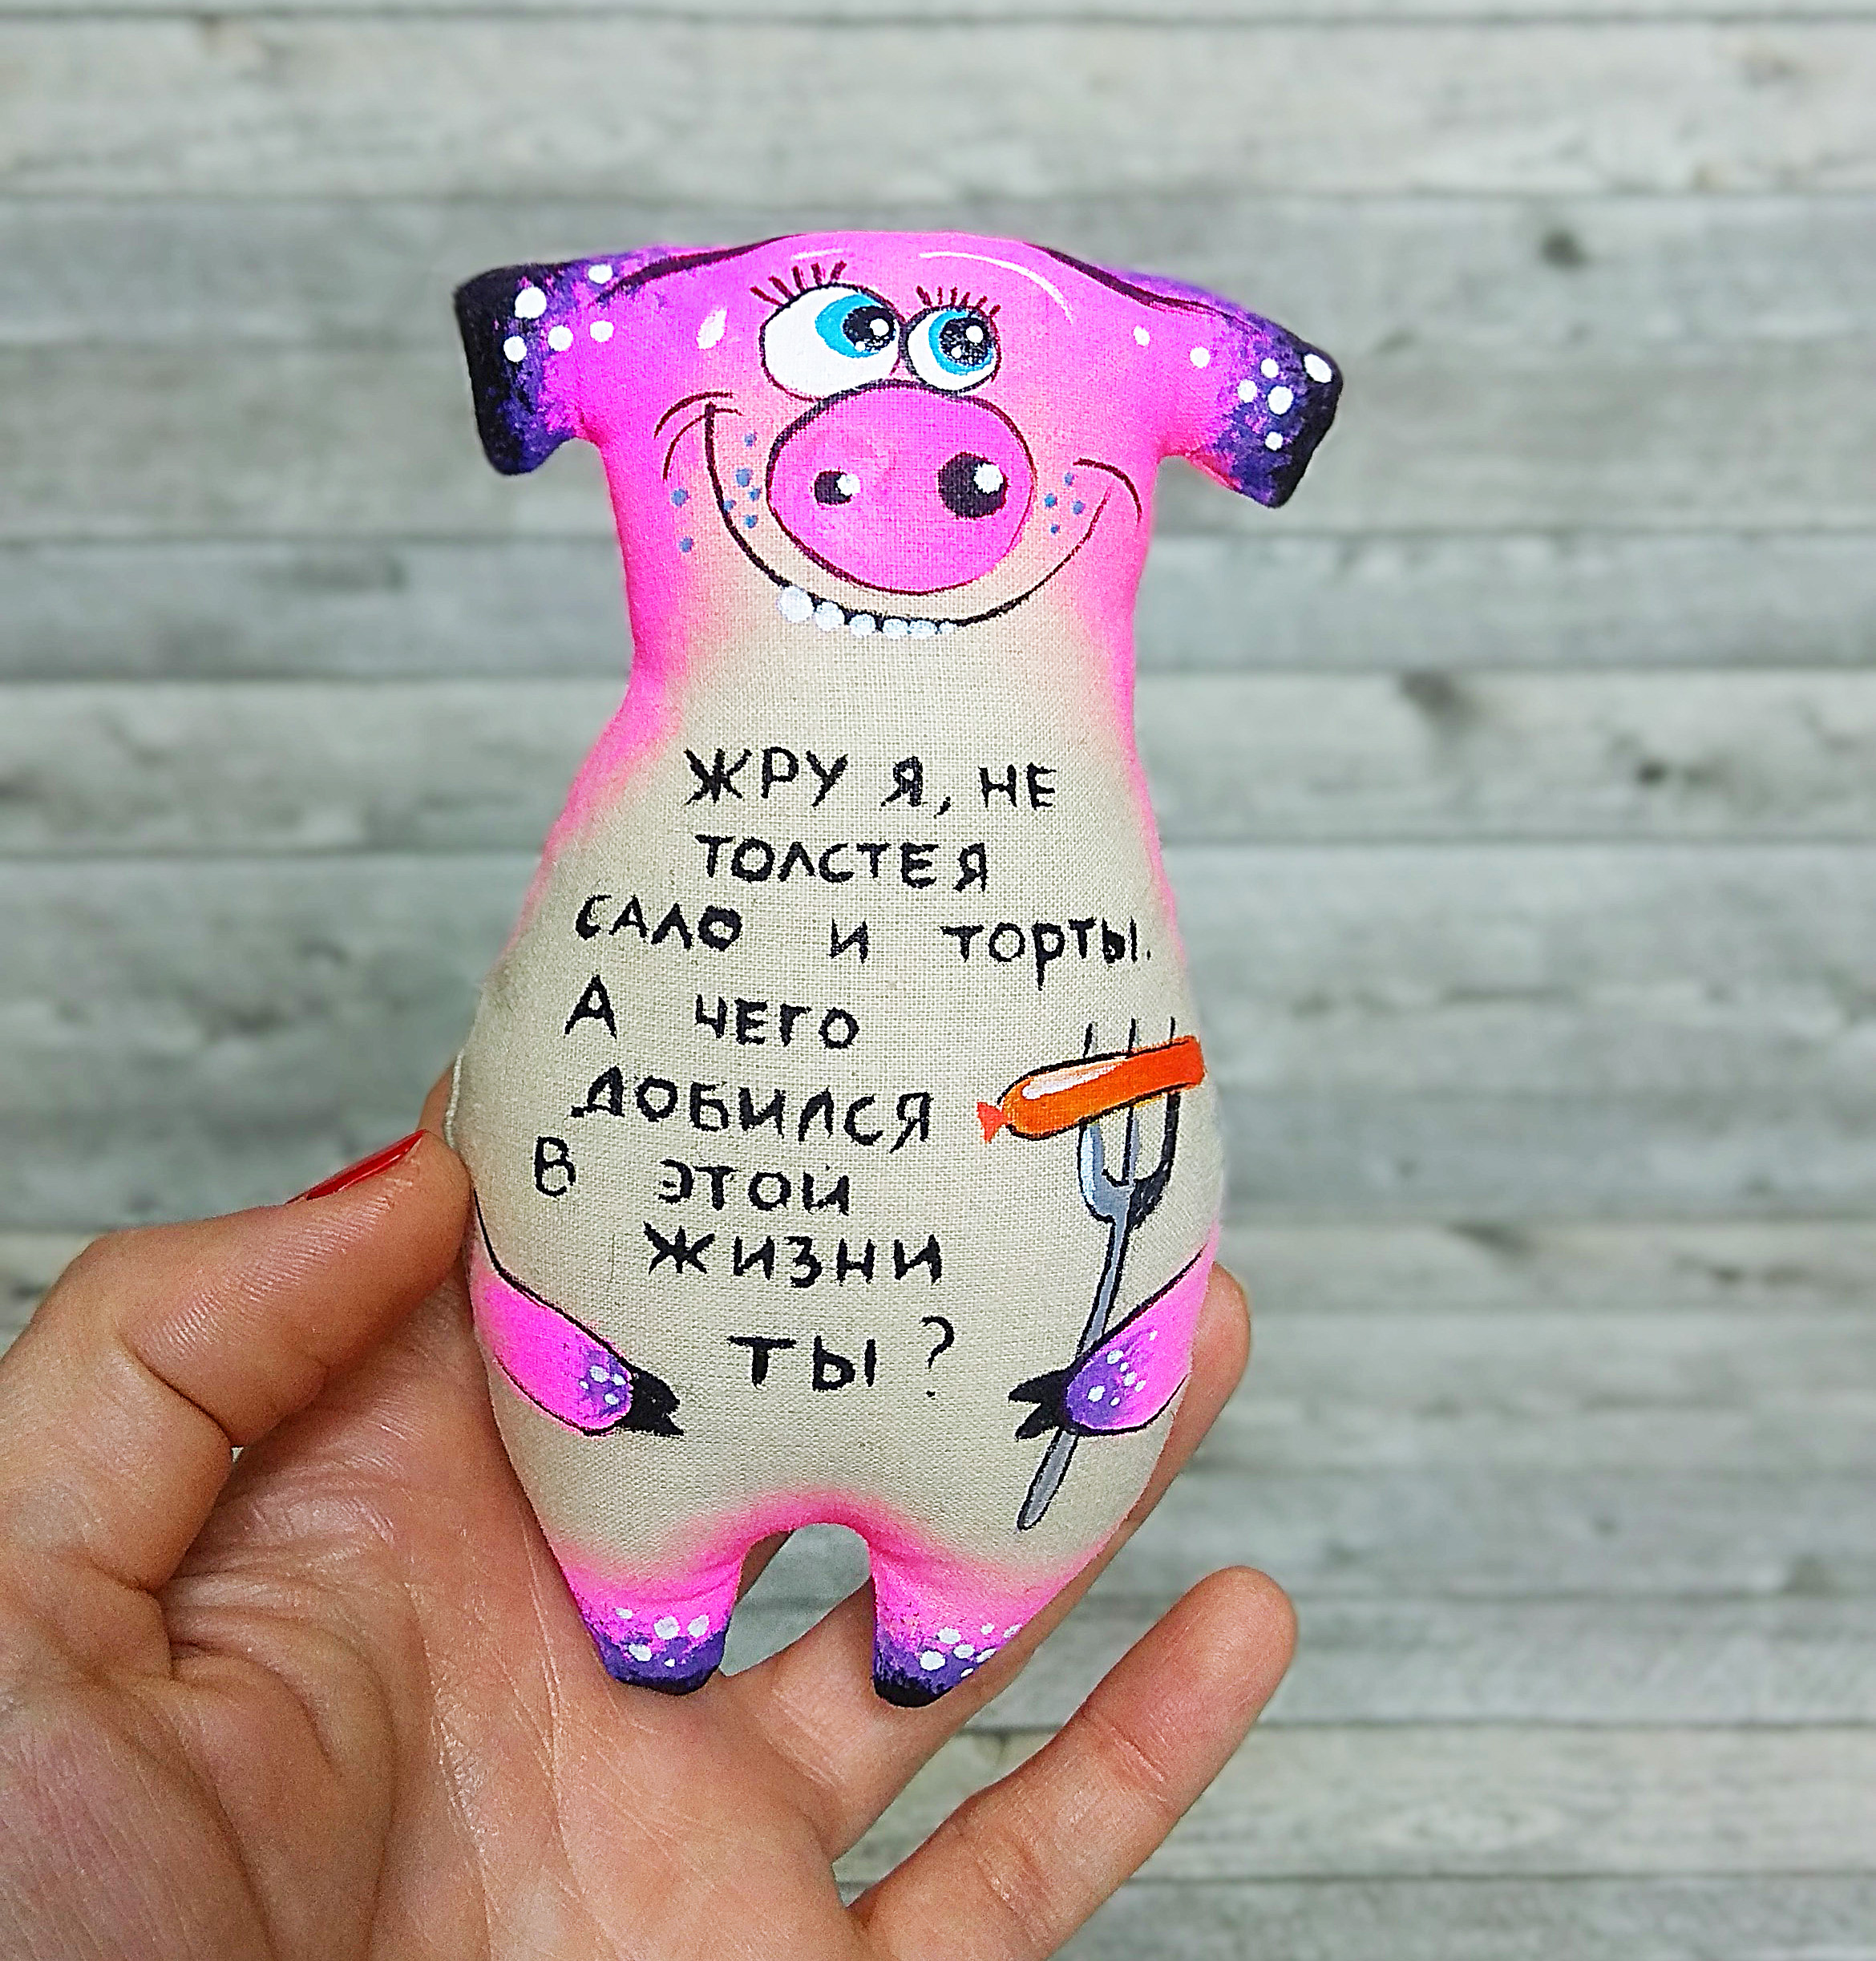 ЖРУ Я, НЕ
ТОЛСТЕЯ
САЛО И ТОРТЫ.
А ЧЕГО
ДОБИЛСЯ
В ЭТОЙ
ЖИЗНИ
ТЫ?